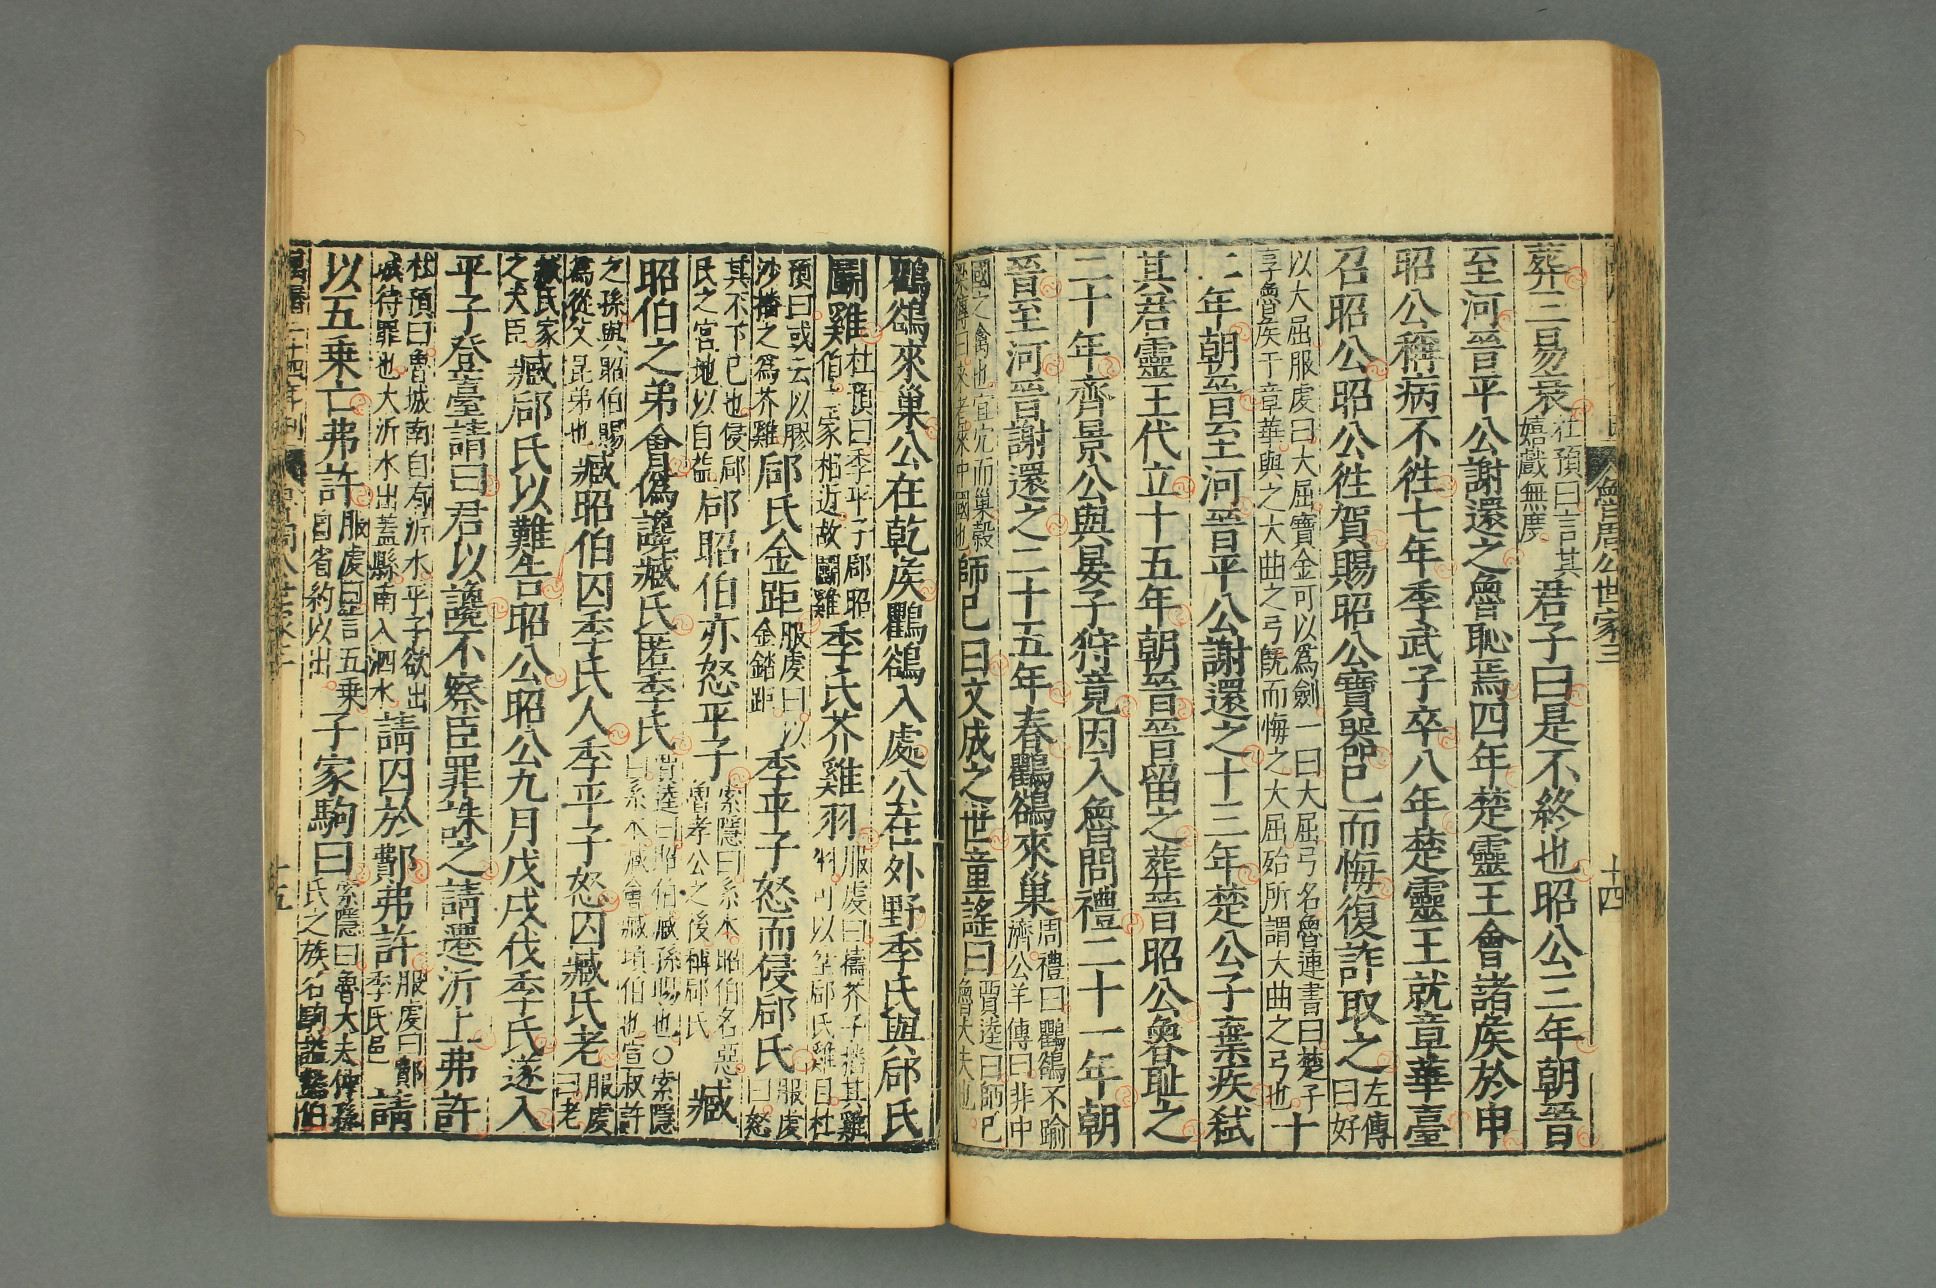 魯周公世家三
十四
葬三易衰杜預曰言其嬉戲無度君子曰是不終也昭公三年朝晉
至河晉平公謝還之魯恥焉四年楚靈王會諸侯於申
昭公稱病不徃七年季武子卒八年楚靈王就章華臺
召昭公昭公徃賀賜昭公寶器已而悔復詐取之左傳曰好
以大屈服虔曰大屈寶金可以爲劍一曰大屈弓名魯連書曰楚子
享魯侯于章華與之大曲之弓旣而悔之大屈殆所謂大曲之弓也十
二年朝晉至河晉平公謝還之十三年楚公子棄疾弑
其君靈王代立十五年朝晉晉留之葬晉昭公魯恥之
二十年齊景公與晏子狩竟因入魯問禮二十一年朝
晉至河晉謝還之二十五年春鸜鵒來巢周禮曰鸜鵒不踰濟公羊傳曰非中
國之禽也宜穴而巢穀梁傳曰來者來中國也師已曰文成之世童謠曰賈逵曰師已魯大夫也
鸜鵒來巢公在乾侯鸜鵒入處公在外野季氏與郈氏
鬭雞杜預曰季平子郈昭伯二家相近故鬭雞季氏芥雞羽服虔曰擣芥子播其雞羽可以坌郈氏雞目杜
預曰或云以膠沙播之爲芥雞郈氏金距服虔曰以金錔距季平子怒而侵郈氏服虔曰怒
其不下已也侵郈氏之宮地以自益郈昭伯亦怒平子索隱曰系本昭伯名惡魯孝公之後稱郈氏臧
昭伯之弟會僞讒臧氏匿季氏賈逵曰昭伯臧孫賜也○索隱曰系本臧會臧頃伯也宣叔許
之孫與昭伯賜爲從父昆弟也臧昭伯囚季氏人季平子怒囚臧氏老服虔曰老
臧氏家之大臣臧郈氏以難告昭公昭公九月戊戌伐季氏遂入
平子登臺請曰君以讒不察臣罪誅之請遷沂上弗許
杜預曰魯城南自有沂水平子欲出城待罪也大沂水出蓋縣南入泗水請囚於鄪弗許服虔曰鄪季氏邑請
以五乗亡弗許服虔曰言五乗自省約以出子家駒曰索隱曰魯大夫仲孫氏之族名駒謚懿伯
十五